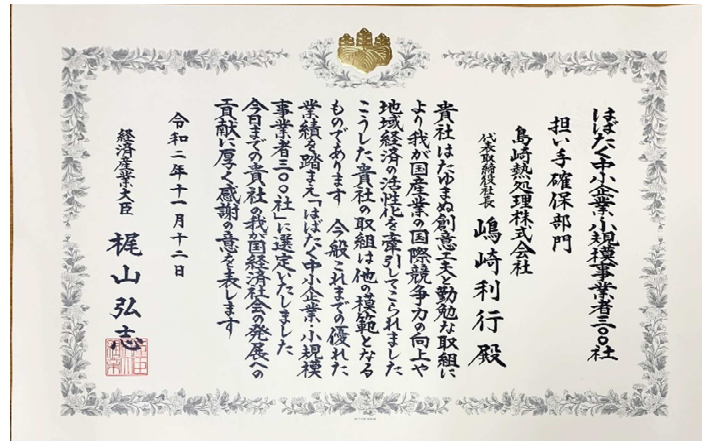 はばたく中小企業・小規模事業者三〇〇社
担い手確保部門
島崎熱処理株式会社
代表取締役社長 嶋崎利行 殿
貴社はたゆまぬ創意工夫と勤勉な取組に
より我が国産業の国際競争力の向上や
地域経済の活性化を牽引してこられました
こうした貴社の取組は他の模範となる
ものであります 今般これまでの優れた
業績を踏まえ「はばたく中小企業・小規模
事業者三〇〇社」に選定いたしました
今日までの貴社の我が国経済社会の発展への
貢献に厚く感謝の意を表します
令和二年十一月十二日
経済産業大臣 梶山弘志